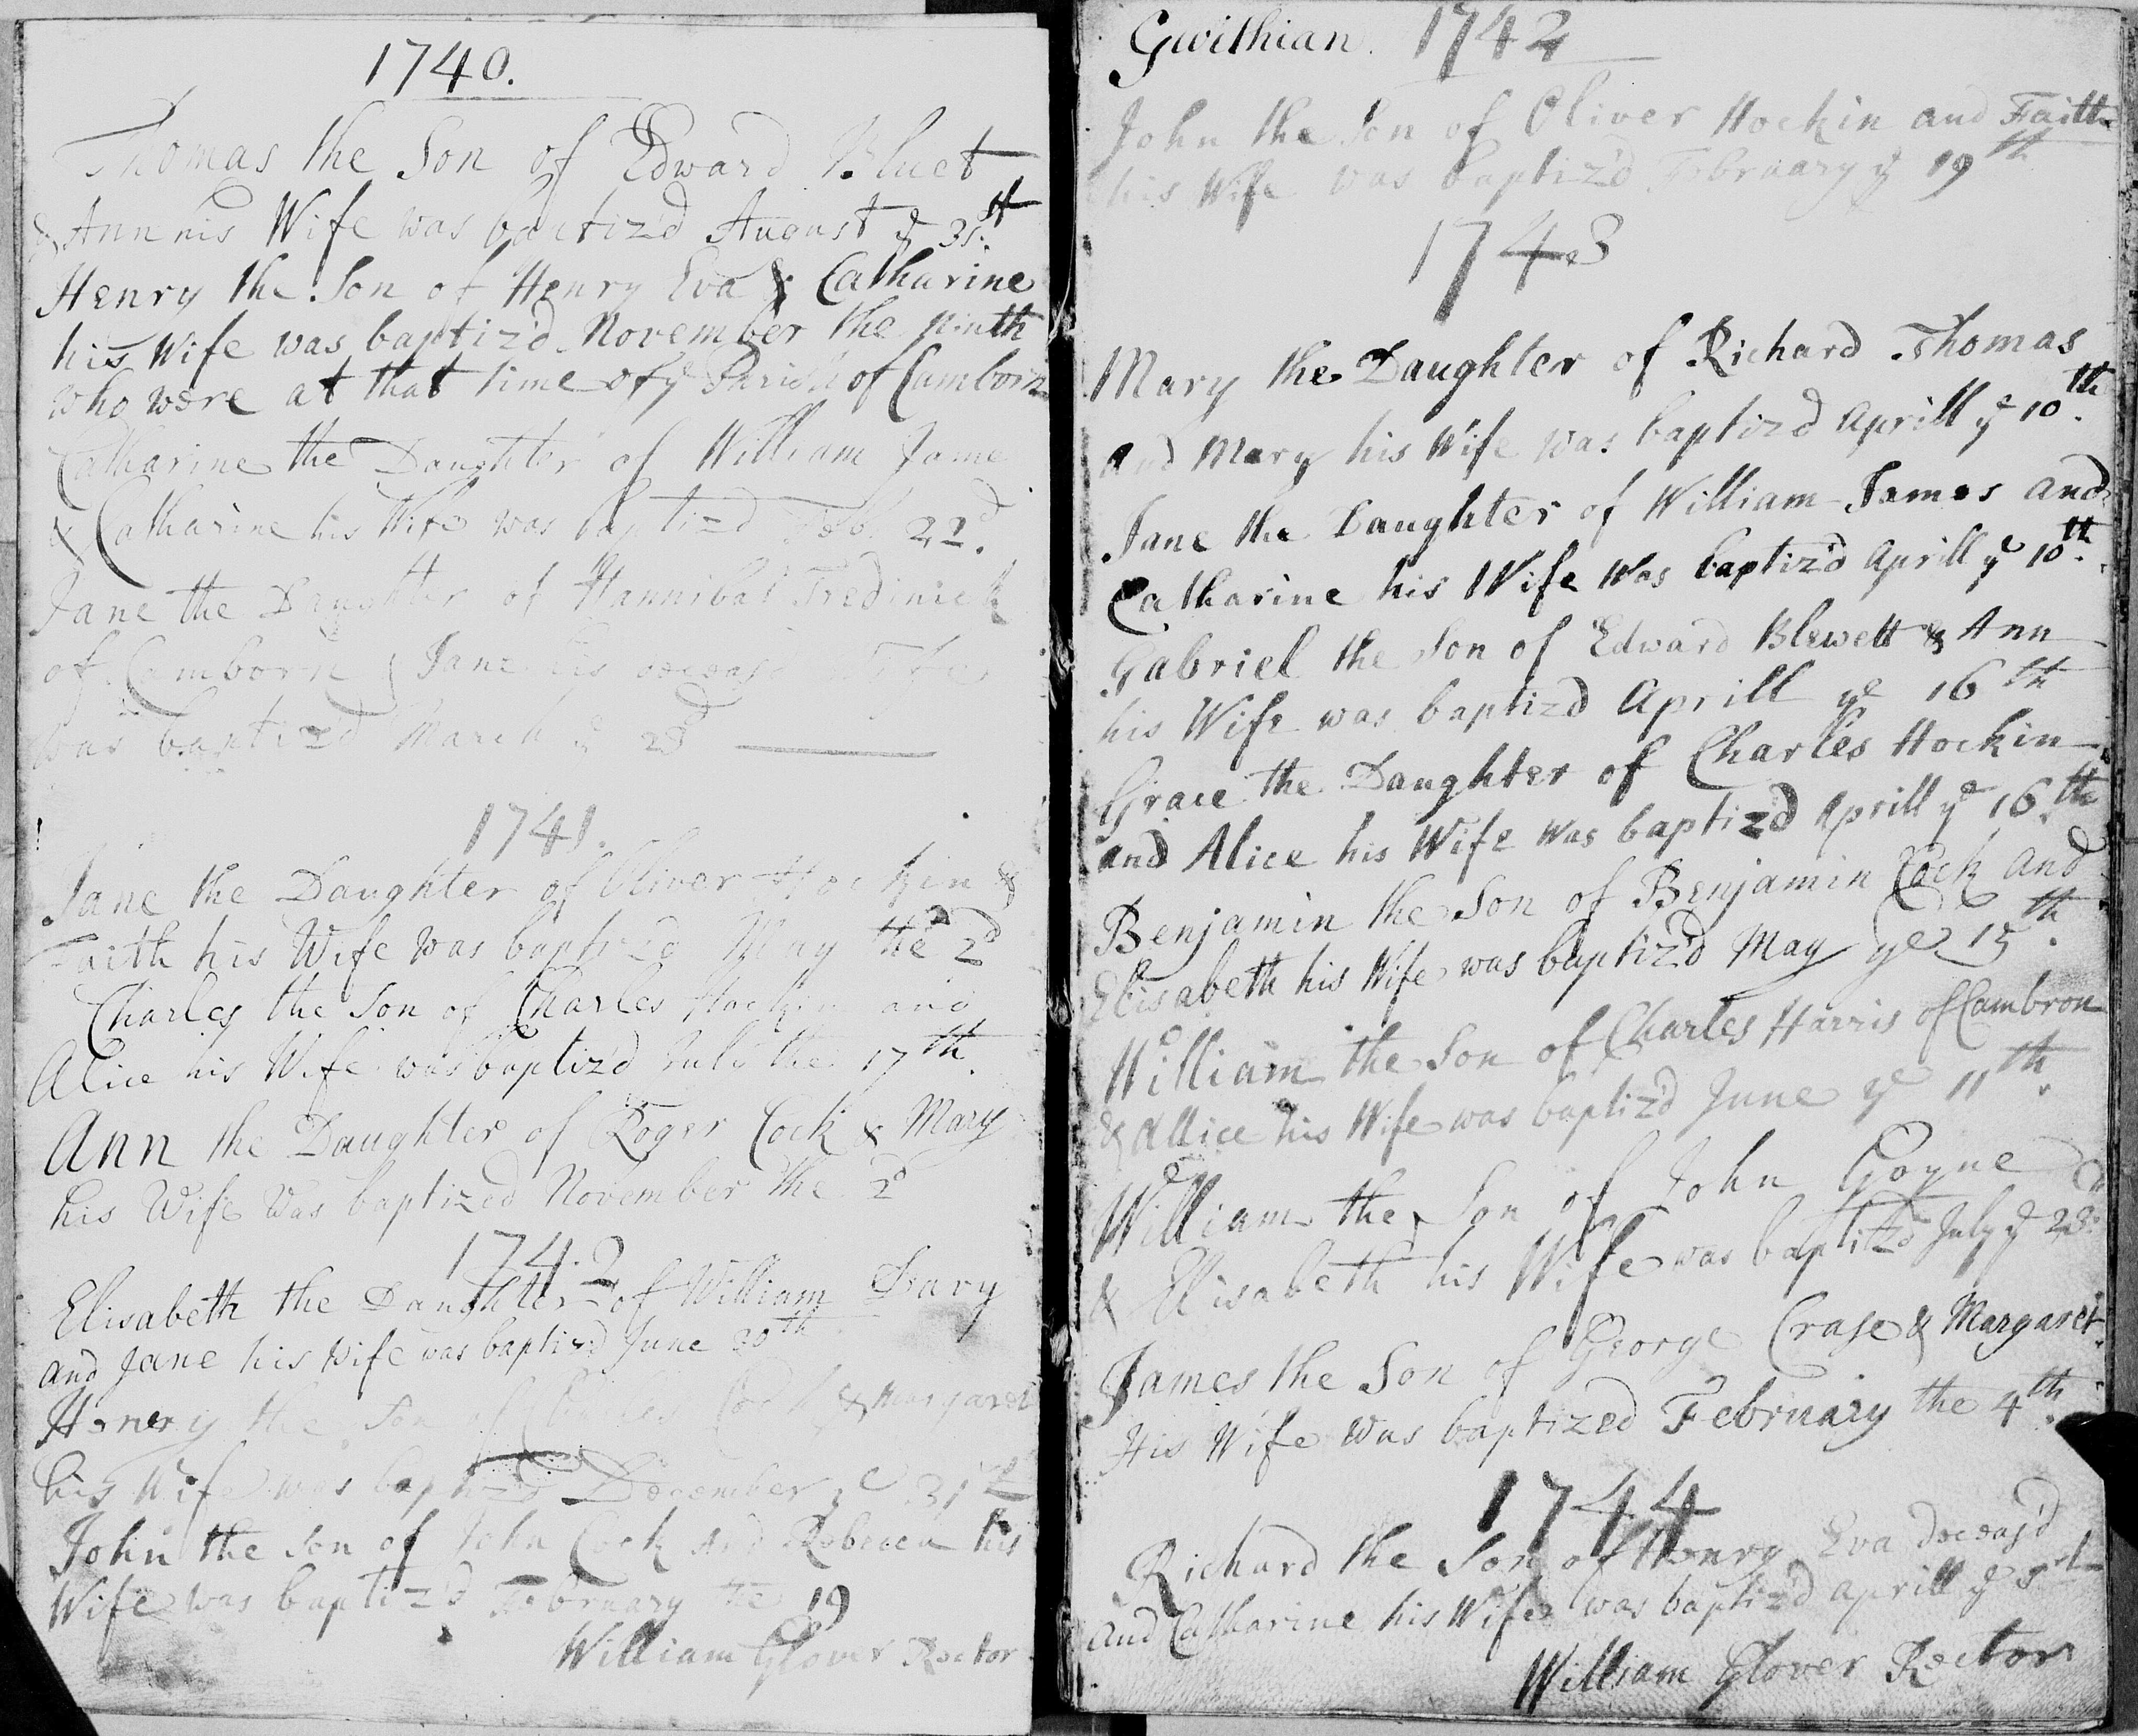 1740.
Thomas the Son of Edward Bluet
& Ann his Wife was baptiz'd August ye 31st
Henry the Son of Henry Eva & Catharine
his Wife was baptiz'd November the ninth
who were at that time of ye Parish of Camborn
Catharine the Daughter of William Jame
& Catharine his Wife was baptized Feb. 22d.
Jane the Daughter of Hannibal
of Camborn & Jane his
was baptized March ye 23d
1741.
Jane the Daughter of Oliver Hockin &
Faith his Wife was baptized May the 2d
Charles the Son of Charles Hockin and
Alice his Wife was baptiz'd July the 17th.
Ann the Daughter of Roger Cock & Mary
his Wife was baptized November the 2d
1742
Elisabeth the Daughter of William Davy
and Jane his Wife was baptizd June 20th
Henery the Son of Cock & Margaret
his Wife was baptiz'd December ye 31st
John the Son of John Cock And Rebecca his
Wife was baptiz'd February the 19
William Glover Rector
Gwithian. 1742
John the Son of Oliver Hockin and Faith
his Wife was baptiz'd February ye 19th
1743
Mary the Daughter of Richard Thomas
and Mary his Wife was baptizd Aprill ye 10th.
Jane the Daughter of William James and
Catharine his Wife was baptiz'd Aprill ye 10th.
Gabriel the Son of Edward Blewett & Ann
his Wife was baptizd Aprill ye 16th
Grace the Daughter of Charles Hockin
and Alice his Wife was baptizd Aprill ye 16.th
Benjamin the Son of Benjamin Cock and
Elisabeth his Wife was baptiz'd May ye 15th.
William the Son of Charles Harris of Cambron
& Allice his Wife was baptiz'd June ye 11th.
William the Son of John Goyne
& Elisabeth his Wife was baptizd July ye 23d:
James the Son of George Crase & Margaret
His Wife was baptized February the 4th.
1744
Richard the Son of Henry Eva deceas'd
and Catharine his Wife was baptiz'd Aprill ye
William Glover Rector